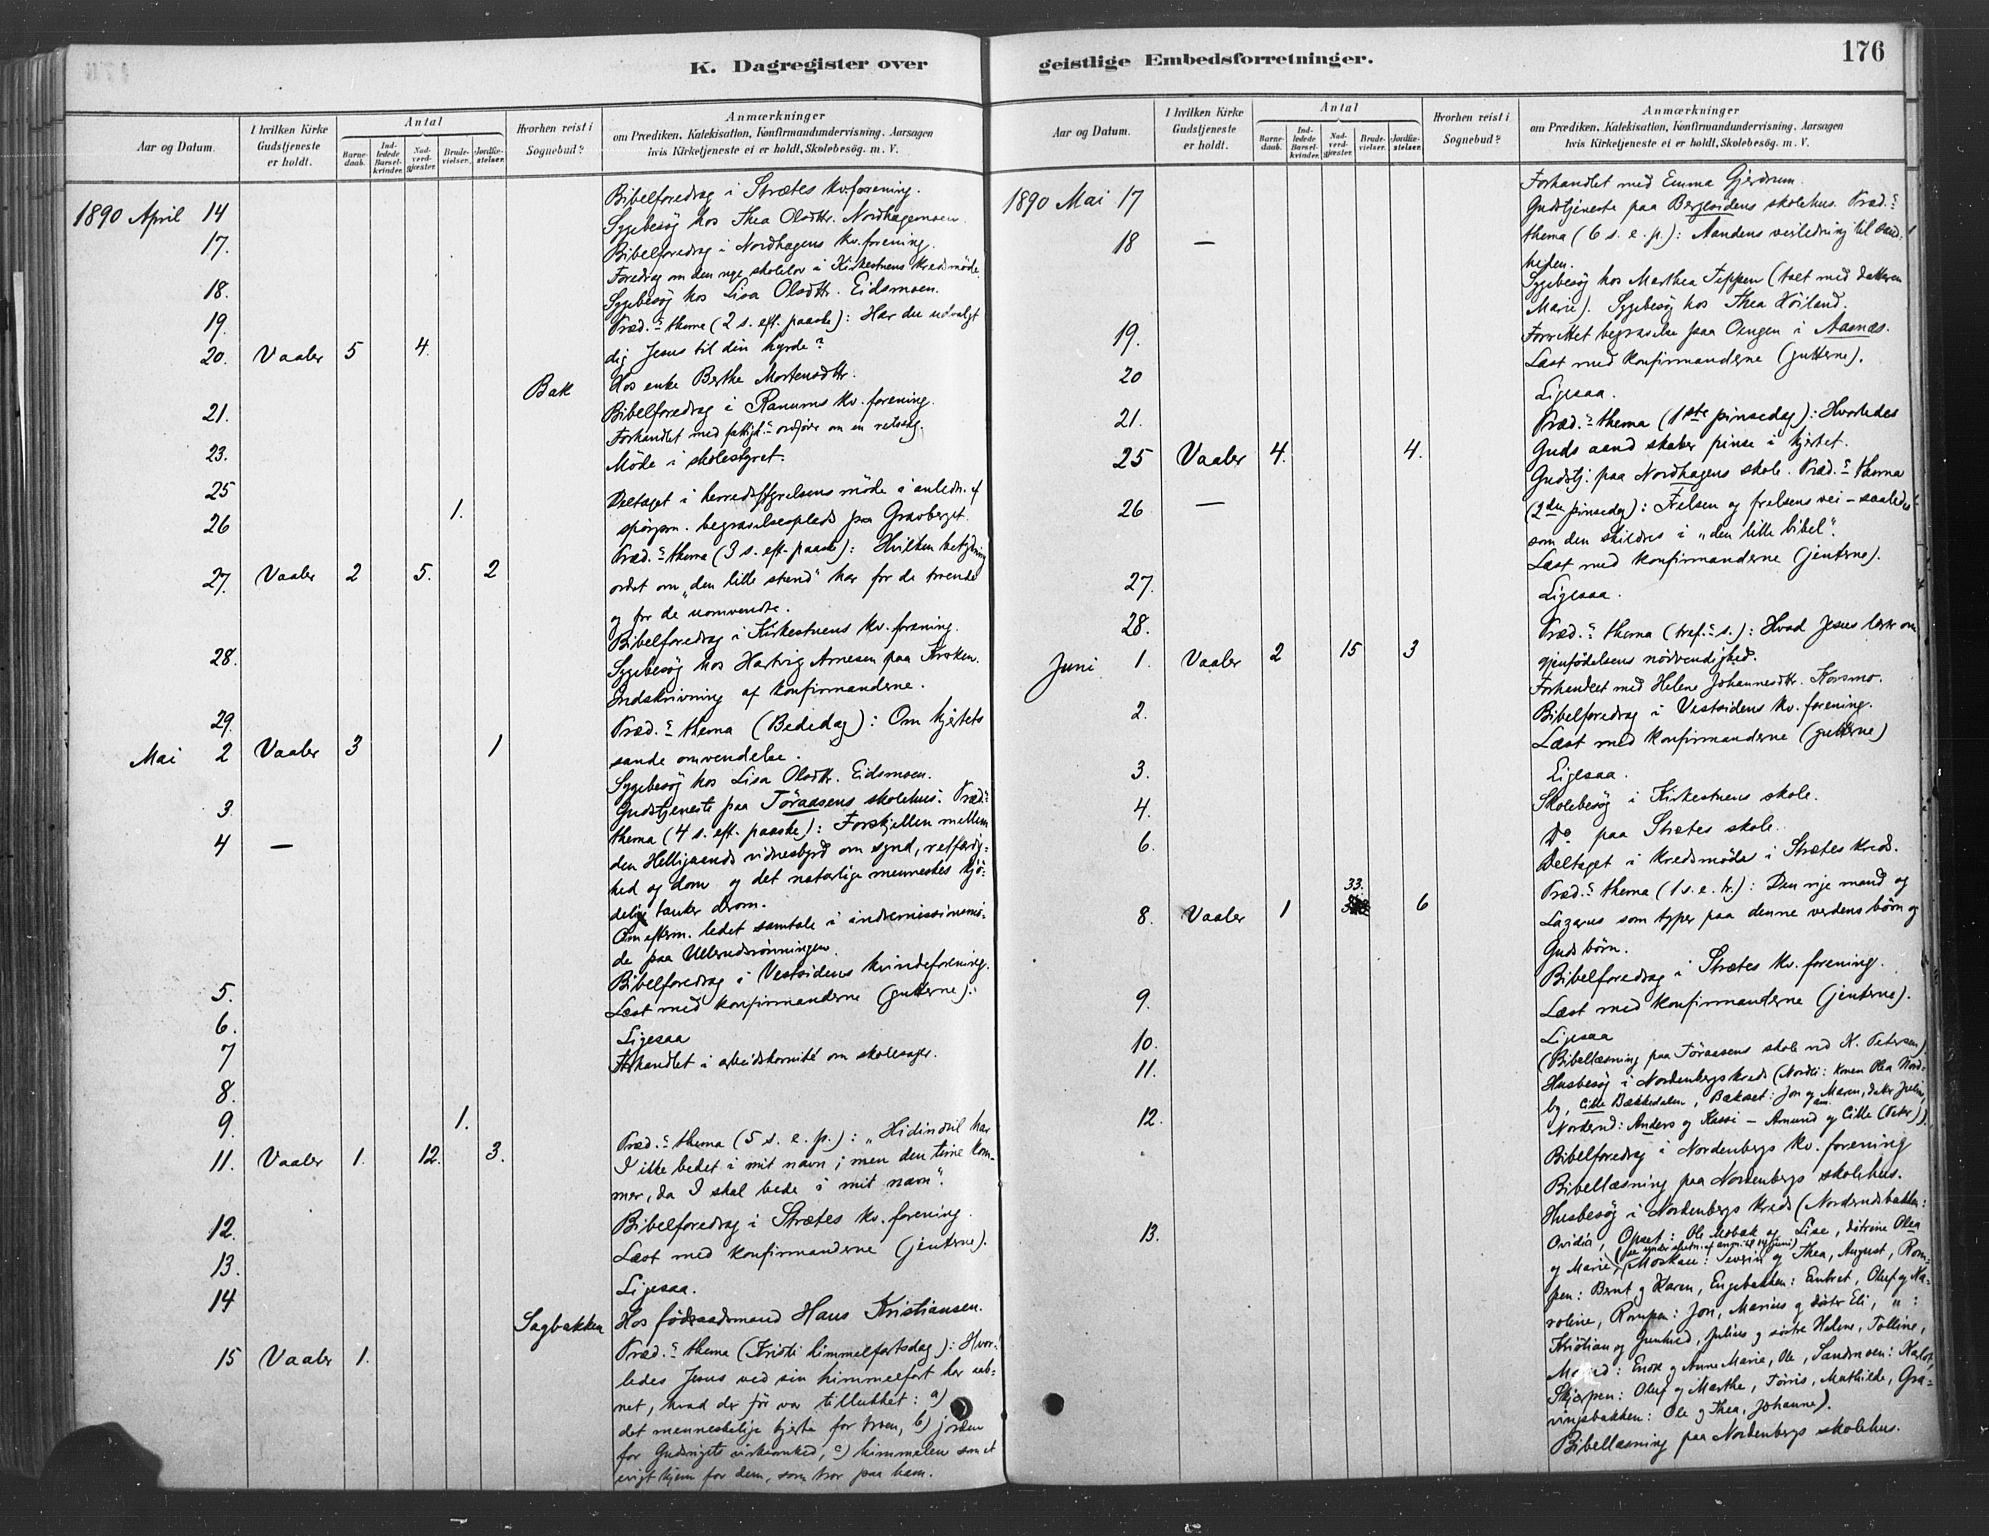 K. Dagregister over
Aar og Datum.
I hvilken Kirke Gudstjeneste er holdt.
Antal
Barnedaab.
Indledede Barselkvinder.
Nadverdgjæster.
Brudevielser.
Jordfæstelser.
Hvorhen reist i Sognebud?
Anmærkninger
om Prædiken, Katekisation, Konfirmandundervisning, Aarsagen
hvis Kirketjeneste ei er holdt, Skolebesøg. m. V.
Bibelforedrag i Strætes kv.forening.
1890 April 14
Sygebesøg hos Thea Olsdtr. Nordhagemoen.
17. Bibelforedrag i Nordhagens kv. forening.
Foredrag om den nye skolelov i Kirkestuens kredsmøde.
18. Sygebesøg hos Lisa Olsdtr. Eidsmoen.
19. Præd.s thema (2 s. eft. paaske): Har du udvalgt
20. Vaaler 5 4. dig Jesus til din hyrde?
Bak Hos enke Berthe Mortensdtr.
21. Bibelforedrag i Ranums kv. forening.
Forhandlet med fattigf.s ordfører om en retssag.
23. Møde i skolestyret.
25 Deltaget i herredsstyrelsens møde i anledn. af
26 1. spørgsm. begravelsesplads paa Gravberget.
Præd.s thema (3 s. eft. paaske): Hvilken betydning
27. Vaaler 2 5. 2 ordet om „den lille stund“ har for de troende
og for de uomvendte.
Bibelforedrag i Kirkestuens kv. forening.
28. Sygebesøg hos Hartvig Arnesen paa Kroken.
Indskrivning af konfirmanderne.
29. Præd.s thema (Bededag): Om hjertets
Mai 2 Vaaler 3 1 sande omvendelse.
Sygebesøg hos Lisa Olsdtr. Eidsmoen.
3 Gudstjeneste paa Toraasens skolehus. Præd.s
thema (4 s. eft. paaske): Forskjellen mellem
4 — den Helligaands vidnesbyrd om synd, retfærdig-
hed og dom og det naturlige menneskes kjø-
delige tanker derom.
Om efterm. ledet samtale i indremissionsmø-
de paa Ullerudsrønningen.
Bibelforedrag i Vestsidens kvindeforening.
5. Læst med konfirmanderne (gutterne).
6. Ligesaa
7 Forhandlet i arbeidskomité om skolesager.
8.
9. 1.
Præd.s thema (5 s. e. p.): „Hidindtil har
11. Vaaler 1. 12. 3. I ikke bedet i mit navn; men den time kom-
mer, da I skal bede i mit navn“.
12. Bibelforedrag i Strætes kv. forening.
13. Læst med konfirmanderne (jenterne).
14 Ligesaa.
Sagbakken Hos fødsraadsmand Hans Kristiansen.
15 Vaaler 1. Præd.s thema (Kristi himmelfartsdag): Hvor-
ledes Jesus ved sin himmelfart har aab-
net, hvad der før var tillukket: a)
det menneskelige hjerte for troen, b) jorden
for Gudsrigets virksomhed, c) himmelen som et
evigt hjem for dem, som tror paa ham.
geistlige Embedsforretninger.
176
Aar og Datum.
I hvilken Kirke Gudstjeneste er holdt.
Antal
Barnedaab.
Indledede Barselkvinder.
Nadverdgjæster.
Brudevielser.
Jordfæstelser.
Hvorhen reist i Sognebud?
Anmærkninger
om Prædiken, Katekisation, Konfirmandundervisning, Aarsagen
hvis Kirketjeneste ei er holdt, Skolebesøg. m. V.
Forhandlet med Emma Gjerdrum.
1890 Mai 17 Gudstjeneste paa Bergesidens skolehus. Præd.s
18 — thema (6 s. e. p.): Aandens veiledning til sand-
heden.
Sygebesøg hos Marthea Teppen (talt med datteren
Marie). Sygebesøg hos Thea Høiland.
19. Forrettet begravelse paa Oengen i Aasnæs.
Læst med konfirmanderne (gutterne).
20 Ligesaa.
21. Præd.s thema (1ste pinsedag): Hvorledes
25 Vaaler 4. 4. Guds aand skaber pinse i hjertet.
Gudstj. paa Nordhagens skole. Præd.s thema
26 — (2den pinsedag): Frelsen og frelsens vei – saaledes
som den skildres i „den lille bibel“.
Læst med konfirmanderne (jenterne).
27. Ligesaa.
28. Præd.s thema (tref.s s.): Hvad Jesus lærer om
Juni 1. Vaaler 2 15 3 gjenfødelsens nødvendighed.
Forhandlet med Helene Johannesdtr. Korsmo.
2. Bibelforedrag i Vestsidens kv. forening.
Læst med konfirmanderne (gutterne)
3. Ligesaa.
4. Skolebesøg i Kirkestuens skole.
Do paa Strætes skole.
6. Deltaget i kredsmøde i Strætes kreds.
33. Præd.s thema (1 s. e. tr.): Den rige mand og
8. Vaaler 1 6 Lazarus som typer paa denne verdens børn og
Guds børn.
Bibelforedrag i Strætes kv. forening.
9. Læst med konfirmanderne (jenterne).
10. Ligesaa
(Bibellæsning paa Toraasens skole ved N. Petersen).
11. Husbesøg i Nordenbergs kreds (Nordli: konen Olea Nord-
by, Cille Bækkedalen, Bakset: Jon og Maren, dater Juline,
12. Norderud: Anders og Kassi – Amund og Cille (Dater)).
Bibelforedrag i Nordenbergs kv. forening
Bibellæsning paa Nordenbergs skolehus.
Husbesøg i Nordenbergs kreds (Norderudsbakken:
13. Ovidia, Opset: Ole Mobak og Lise, døtrene Olea
og Marie, (Moskau: Severin og Thea, August, Rom-
pen: Bernt og Karen, Engebakken: Embret, Oluf og Ka-
roline, Rompen: Jon, Marius og dater Eli, „ :
Kristian og Gunhild, Julius og søstre Helene, Tolline,
Enok og Anne Marie, Ole, Sandmoen: Karlot,
Skjærpen: Oluf og Marthe, Tørris, Mathilde, Gra-
vingsbakken: Ole og Thea, Johanne).
Bibellæsning paa Nordenbergs skolehus.